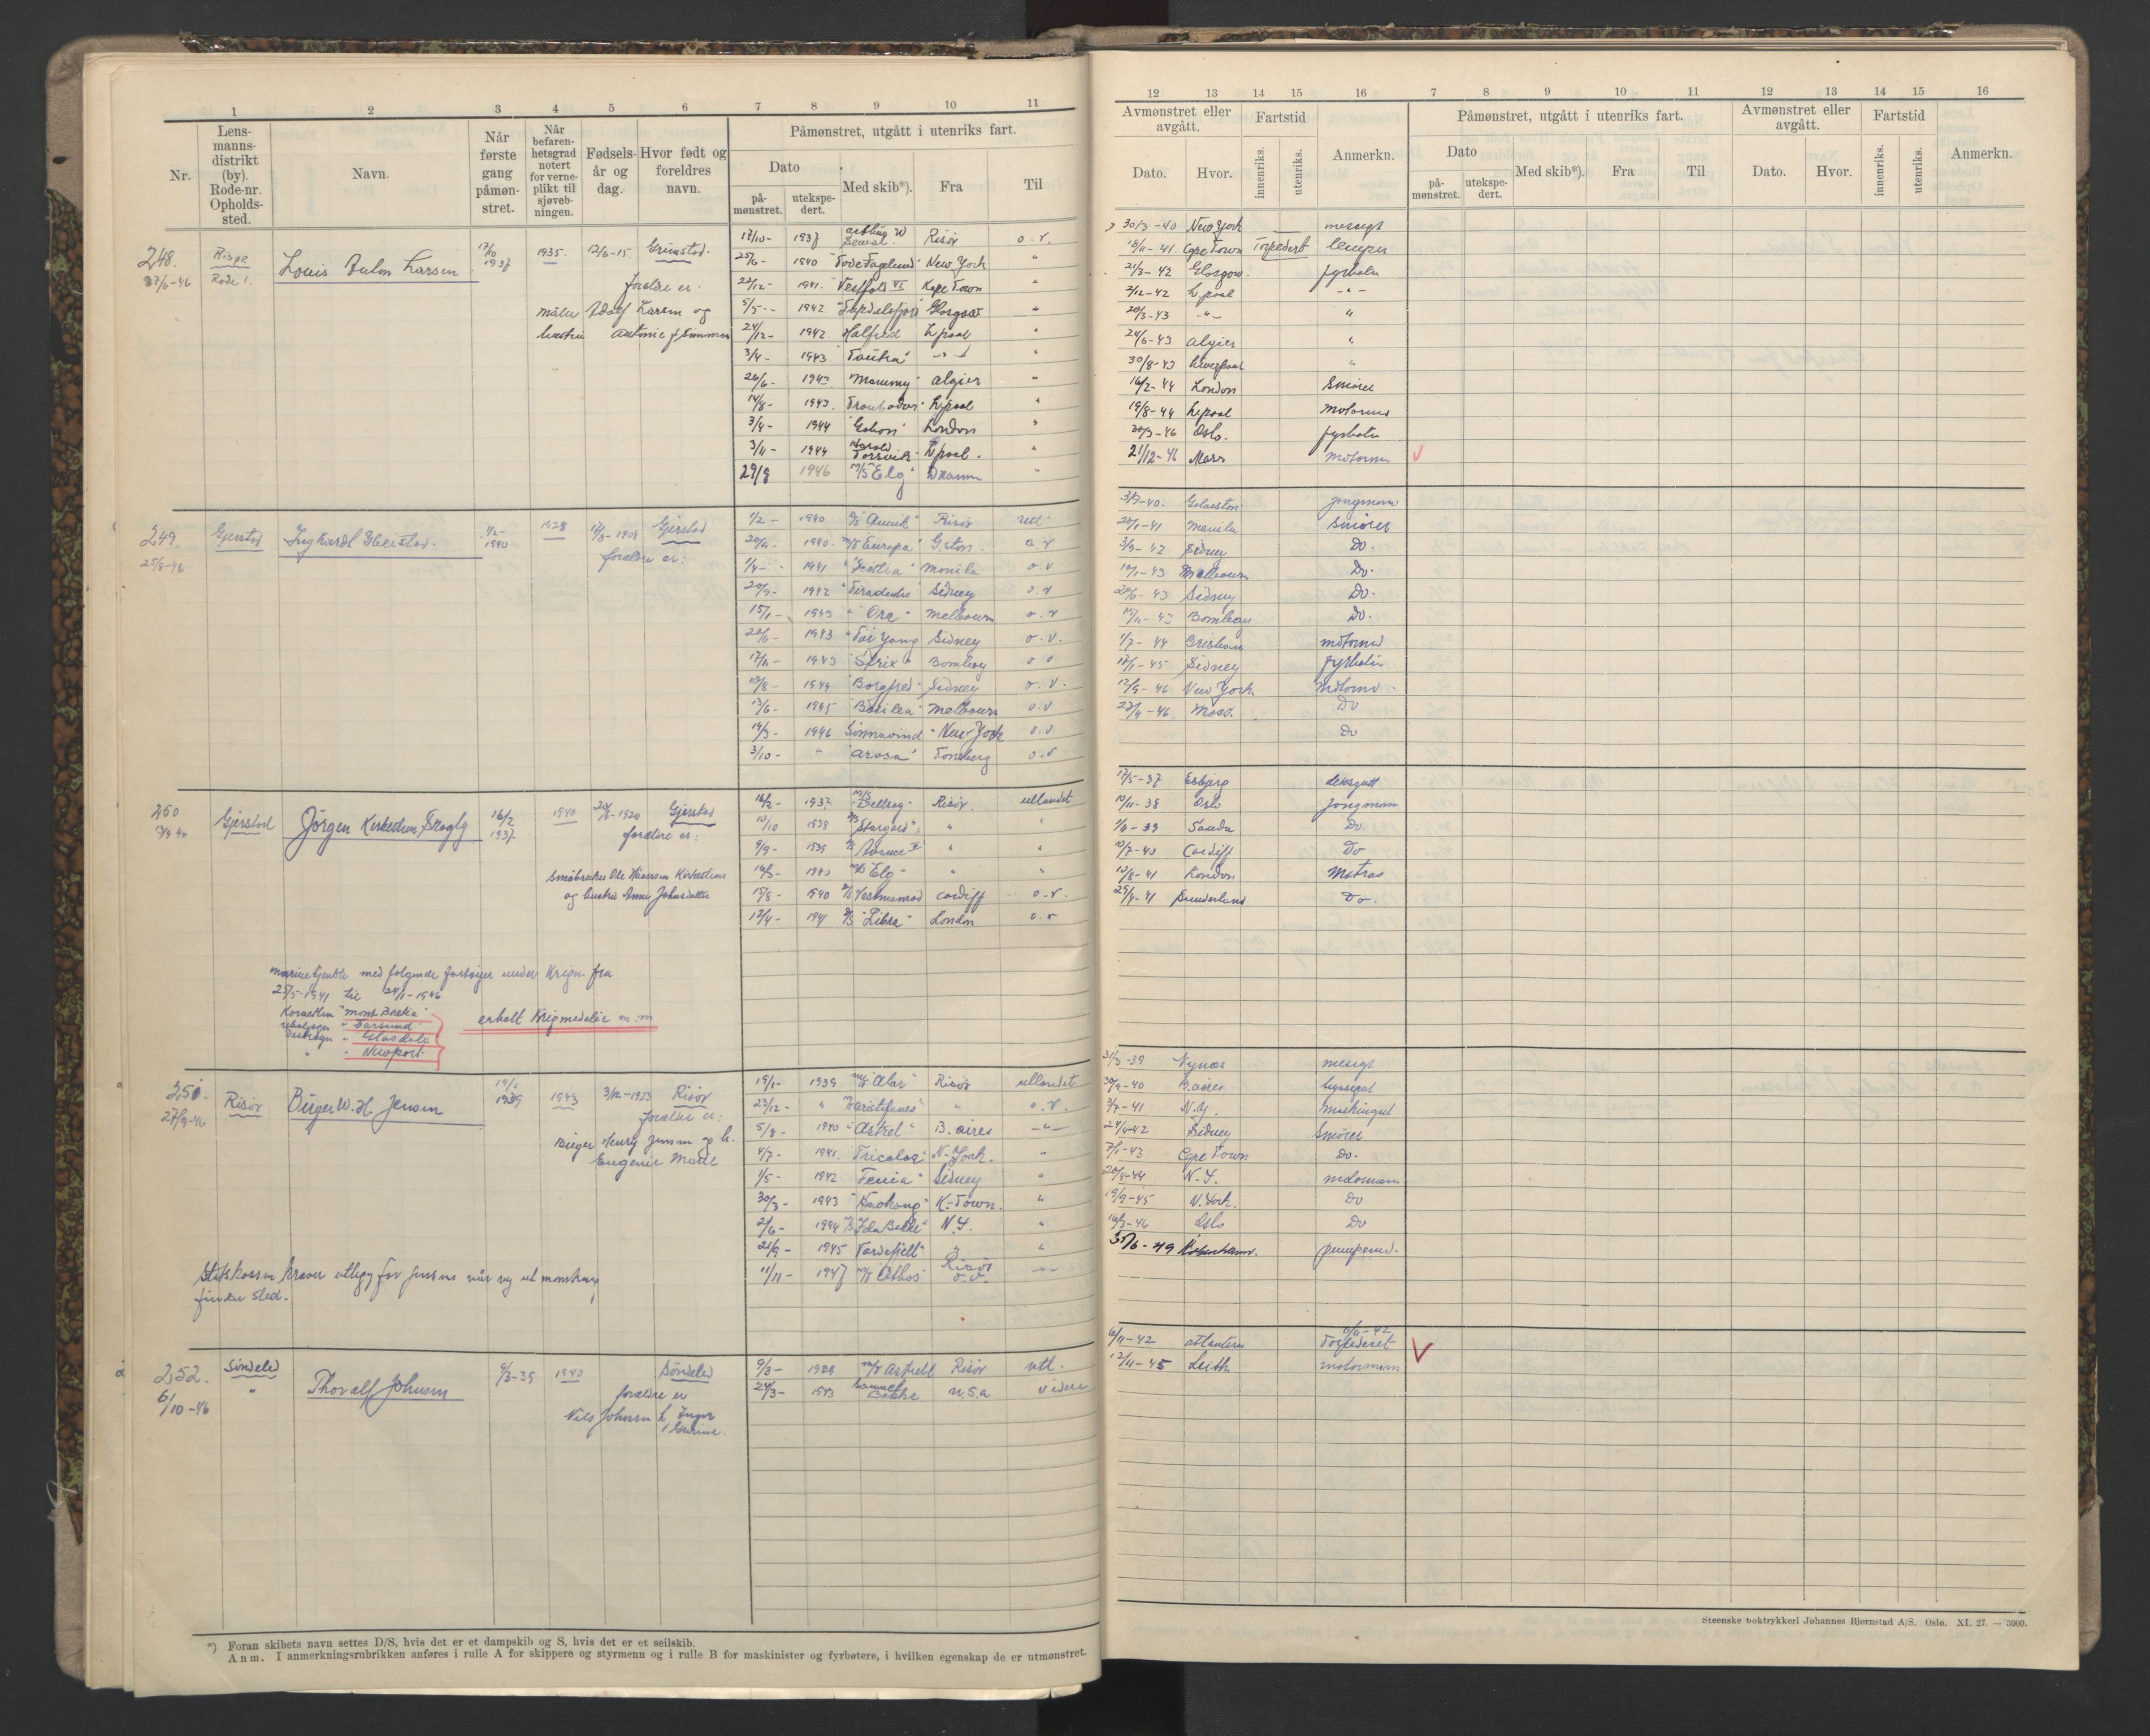 1 2 3 4 5 6 7 8 9 10 11
Nr.
Lens-
manns-
distrikt
(by).
Rode-nr.
Opholds-
sted.
Navn.
Når
første
gang
påmøn-
stret.
Når
befaren-
hetsgrad
notert
for verne-
plikt til
sjøveb-
ningen.
Fødsels-
år og
dag.
Hvor født og
foreldres
navn.
Påmønstret, utgått i utenriks fart.
Dato
på-
mønstret.
utekspe-
dert.
Med skib*).
Fra
Til
248. Risør Louis Anton Larsen 17/10 1937 1935. 12/6-15. Grimstad.
27/6-46 Rode 1.
foreldre er
maler Adolf Larsen og
hustru Antonie f.
17/10- 1937 Risør o.v.
25/6- 1940 "Tove Fagelund" New York "
22/12- 1941. "Vestfold VI" Kape Town "
5/5- 1942 Glasgow "
24/12- 1942 Halfred L.pool "
3/4- 1943 "Tautra" "
26/6- 1943 Algier "
14/8- 1943. "Troubadour" L.pool "
3/4- 1944 London "
3/11- 1944 Harald Torsvik L.pool. "
29/8 1946 M/S "Elg" "
249. Gjerstad Heistad. 1/2- 1940 1928 1908 Gjerstad
25/8-46
foreldre er:
1/2- 1940 Risør utl.
20/9- 1940. M/T "Europa" G.ston. o.v
1/4- 1941 "Scotia" Manila o.v
20/9- 1942 Sidney o.v
15/1- 1943 "Ora" Melbourn o.v
20/6- 1943 "Tai Yang" Sidney o.v.
17/11- 1943 "Strix" Bombay o.v
18/8- 1944 "Borgfred" Sidney o.v.
13/6- 1945 "Basilea" Melbourn o.v
14/3- 1946 Sønnavind New-York o.v
3/10- " "Arosa" Tønsberg o.v
250 Gjerstad Jörgen Kerkedien, Skogly 16/2 1937. 1940 1920 Gjerstad
foreldre er:
småbruker Ole Kerkedien
og hustru Anne Johnsdatter
16/2- 1937 Risør. utlandet
10/10 1938 "Stargard" " "
9/9- 1939 " "
14/3- 1940 M/S "Elg" " "
15/8- 1940 "Vestmanrød" Cardiff o.v.
17/4- 1941 D/S "Libra" London o.v
marinetjeneste med følgende fartøyer under krigen fra
25/5-1941 til 24/1-1946
Korvetten "Mont Breta"
"Farsund"
"Glasdale"
" " Newport
erholt krigmedalie m.m
251. Risør Birger W. H. Jensen 19/1 1939 1943 3/12-1923 Risør
27/9-46
foreldre er:
Birger Henry Jensen og h.
Eugenie Marie
19/1- 1939 Risør utlandet
23/12- " "Aristofanes" " o.v.
5/8- 1940 "Astrel" B.aires -"-
4/7- 1941. "Tricolor" N.York. "
1/5- 1942 "Fenia" Sidney "
30/3- 1943 "Høihong" K.Town. "
2/6- 1944 "Ida Bakke" N.Y. "
21/9- 1945 "Vardefjell" " "
11/11- 1947 M/T "Athos" Risør o.v. -"-
kreves utlegg for Jensen når ny ut mønstring
finder sted.
252. Søndeled Thoralf Johnsen 9/3-39 1940 Søndeled
6/10-46 "
foreldre er
Nils Johnsen h. Inger
Gurine.
9/3- 1939 Risør utl.
24/3- 1943 Samuel Bakke U.S.A videre
*) Foran skibets navn settes D/S, hvis det er et dampskib og S, hvis det er et seilskib.
Anm. I anmerkningsrubrikken anføres i rulle A for skippere og styrmenn og i rulle B for maskinister og fyrbøtere, i hvilken egenskap de er utmønstret.
12 13 14 15 16 7 8 9 10 11 12 13 14 15 16
Avmønstret eller
avgått.
Fartstid
Dato.
Hvor.
innenriks.
utenriks.
Anmerkn.
Påmønstret, utgått i utenriks fart.
Dato
på-
mønstret.
utekspe-
dert.
Med skib*).
Fra
Til
Avmønstret eller
avgått.
Fartstid
Dato.
Hvor.
innenriks.
utenriks.
Anmerkn.
30/3-40 New York messegt
18/11-41. Cape Town Torpedert lemper
21/3-42 Glasgow. fyrbøter
2/12-42 L.pool -"-
20/3-43 -"- "
24/6-43 Algier "
30/8-43 Liverpool "
16/2-44 London Smører
19/8-44 L.pool motormd
20/3-46 Oslo. fyrbøter
21/12-46 Moss motormn
3/9-40. Galveston jungmann
28/1-41 Manila Smører
3/9-42 Sidney Do.
10/1-43 Melbourn Do.
20/6-43 Sidney Do.
15/11-43 Bombay Do.
1/7-44 Brisban motormd
17/1-45 Sidney fyrbøter
12/9-46 New York motormd.
23/4-46. Moss. Do
Do
17/5-37 Esbjerg dekksgutt
10/11-38 Oslo jungmann
1/11-39 Sauda Do.
10/7-40 Cardiff Do
13/8-41 London Matros
25/4-41 Sunderland Do.
31/8-39 Nynæs messgt
30/9-40 B.aires byssegut
3/7-41 N.Y. maskingut
24/4-42 Sidney Smører
7/1-43 Cape Town Do.
20/4-44 N.Y. motormann
19/9-45 N.York. Do
16/3-46 Oslo Do
30/6-49 København. pumpemd.
6/11-42 Atlanteren 6/11-42 Torpederet
12/11-45 Leith motormann
Steenske boktrykkeri Johannes Bjørnstad A/S. Oslo. XI. 27. — 3000.